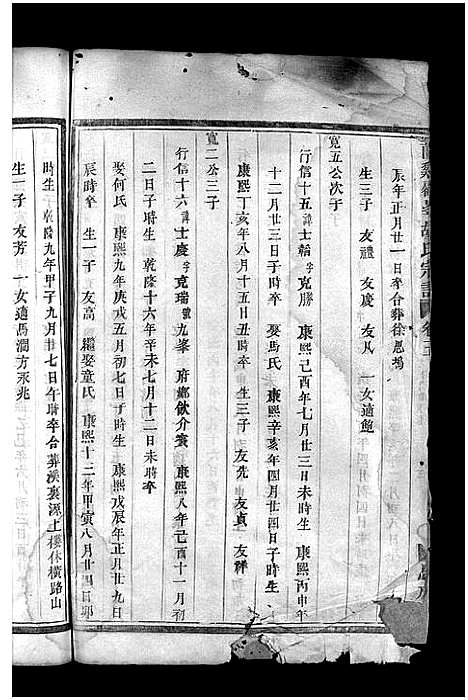 辰年正月廿一日卒合葬徐思塢
生三子 友慶 友 一女適鮑
寬五公次子
行信十五諱士 字克勝 康熙己酉年七月廿三日未時生 康熙丙申年
十二月廿三日子時卒 娶馬氏 康熙辛亥年四月廿四日子時生
康熙丁亥年八月十五日丑時卒 生三子 友先 友貞 友祥
寬二公三子
行信十六諱士慶字克瑞號九峯 府鄉飲介賓 康熙八年己酉十一月初
二日子時生 乾隆十六年辛未七月十二日未時卒
娶何氏 康熙九年庚戌五月初七日子時生 康熙戊辰年正月廿九日
辰時卒 生一子 友高 繼娶童氏 康熙十三年甲寅八月廿四日卯
時生 乾隆九年甲子九月廿七日午時卒合葬溪裏源上樓休橫路山
生一子 友芳 一女適馬澗方永兆
胡氏宗譜